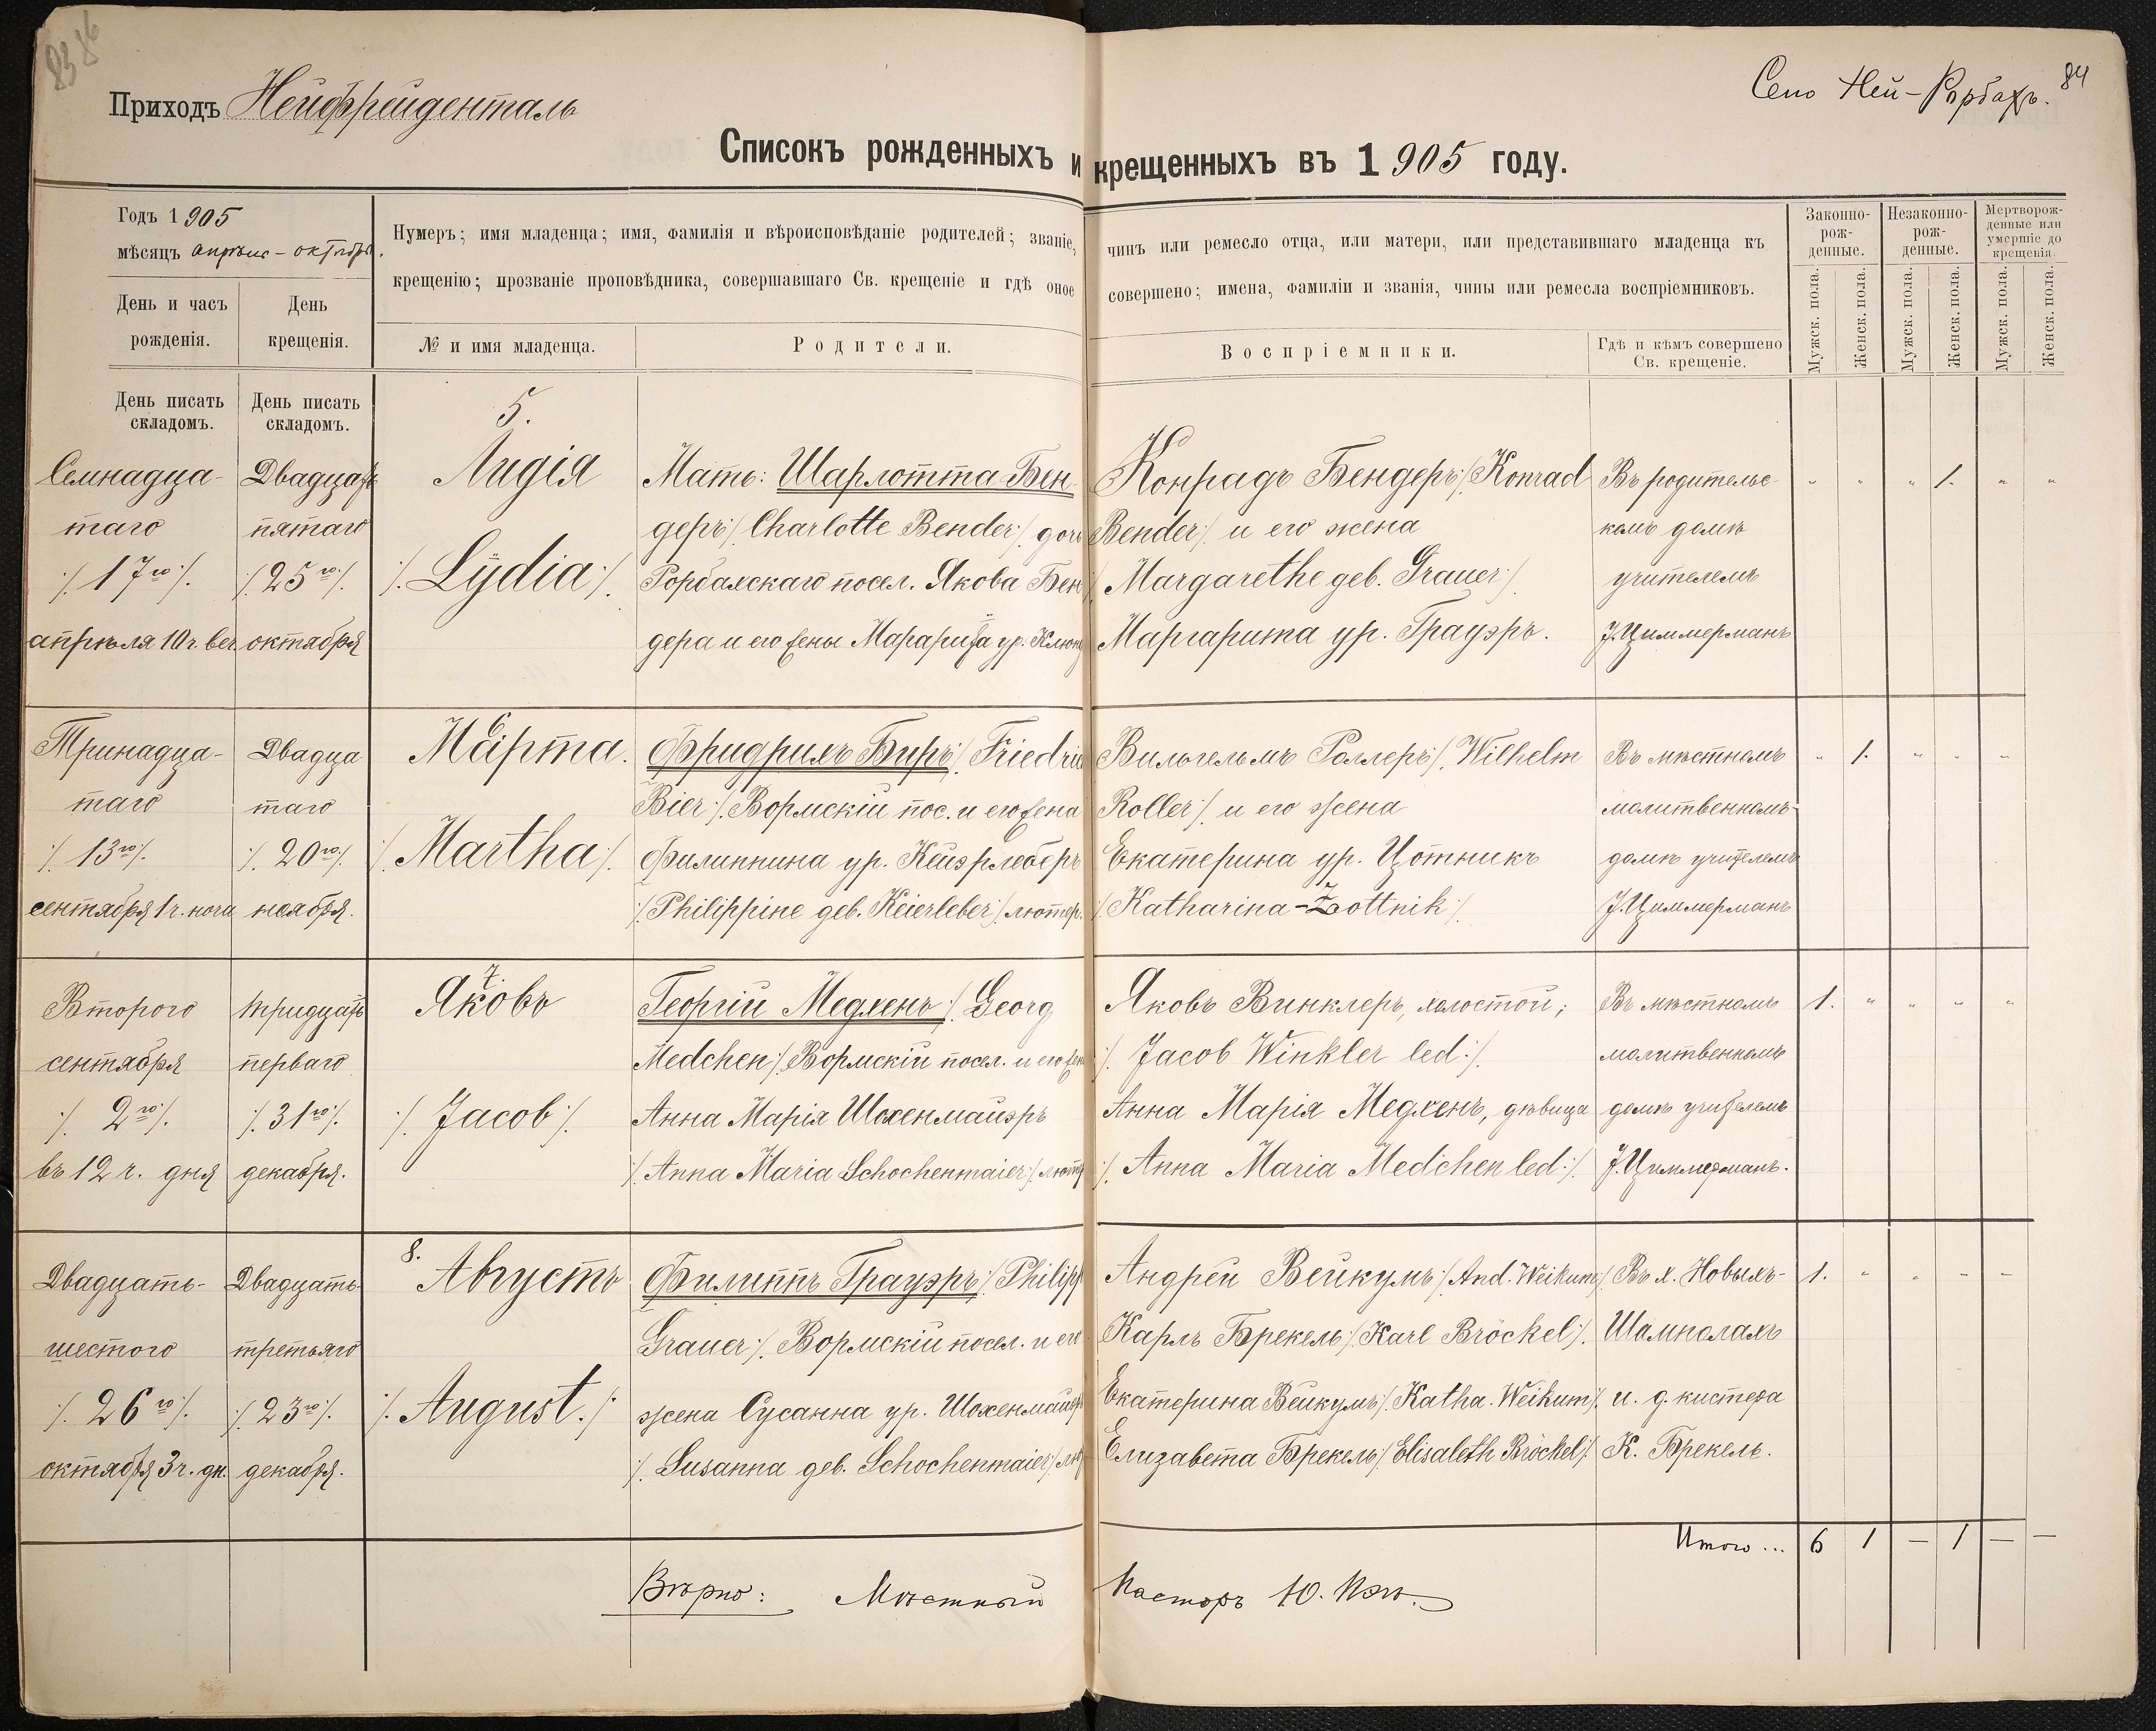 83 86
Приходъ Нейфрейденталь
Село Ней-Рорбахъ. 84
Списокъ рожденныхъ и крещенныхъ въ 1905 году.
Годъ 1905
мѣсяцъ апрѣль - октябрь.
День и часъ рожденія.
День крещенія.
Нумеръ; имя младенца; имя, фамилія и вѣроисповѣданіе родителей; званіе, чинъ или ремесло отца, или матери, или представившаго младенца къ
крещенію; прозваніе проповѣдника, совершавшаго Св. крещеніе и гдѣ оное совершено; имена, фамиліи и званія, чины или ремесла воспріемниковъ.
№ и имя младенца.
Родители.
Воспріемники.
Гдѣ и кѣмъ совершено Св. крещеніе.
Законно-рож-денные.
Незаконно-рож-денные.
Мертворож-денные или умершіе до крещенія.
Мужск. пола.
Женск. пола.
Мужск. пола.
Женск. пола.
Мужск. пола.
Женск. пола.
День писать складомъ.
День писать складомъ.
Семнадца-
таго
/: 17го :/
апрѣля 10 ч. веч.
Двадцать
пятаго
/: 25го :/
октября
5.
Лидія
/: Lÿdia :/
Мать: Шарлотта Бен-
деръ /: Charlotte Bender :/ дочь
Рорбахскаго посел. Якова Бен-
дера и его жены
Конрадъ Бендеръ /: Konrad
Bender :/ и его жена
/: Margarethe geb. Grauer :/
Маргарита ур. Грауэръ.
Въ родительс-
комъ домѣ
учителемъ
J. Циммерманъ
" " " 1. " "
Тринадца-
таго
/: 13го :/
сентября 1 ч. ночи
Двадца
таго
/: 20го :/
ноября.
6
Марта.
/: Martha :/
Фридрихъ Биръ /: Friedrich
Bier :/ Вормскій пос. и его жена
Филиппина ур. Кейэрлеберъ
/: Philippine geb. Keierleber :/ лютер.
Вильгельмъ Роллеръ /: Wilhelm
Roller :/ и его жена
Екатерина ур. Цотникъ
/: Katharina - Zottnik :/
Въ мѣстномъ
молитвенномъ
домѣ учителемъ
J. Циммерманъ
" 1. " " "
Второго
сентября
/: 2го :/
въ 12 ч. дня
тридцать
перваго
/: 31го :/
декабря.
7.
Яковъ
/: Jacob :/
Георгій Медхенъ /: Georg
Medchen :/ Вормскій посел. и его жен
Анна Марія Шохенмайэръ
/: Anna Maria Schochenmaier :/ лютер
Яковъ Винклеръ, холостой;
/: Jacob Winkler led :/
Анна Марія Медхенъ, дѣвица
/: Anna Maria Medchen led :/
Въ мѣстномъ
молитвенномъ
домѣ учителемъ
J. Циммерманъ.
1. " " " "
Двадцать-
шестого
/: 26го :/
октября 3 ч. дн.
Двадцать-
третьяго
/: 23го :/
декабря.
8.
Августъ
/: August. :/
Филиппъ Грауэръ /: Philipp
Grauer :/ Вормскій посел. и его
жена Сусанна ур. Шохенмайэръ
/: Susanna geb. Schochenmaier :/ лют
Андрей Вейкумъ /: And. Weikum :/
Карлъ Брекель /: Karl Bröckel :/
Екатерина Вейкумъ /: Katha. Weikum :/
Елизавета Брекель /: Elisabeth Bröckel :/
Въ х. Новыхъ-
Шомполахъ
и. д. кистера
К. Брекель.
1. " " " "
Итого ... 6 1 — 1 — —
Вѣрно: Мѣстный Пасторъ Ю.